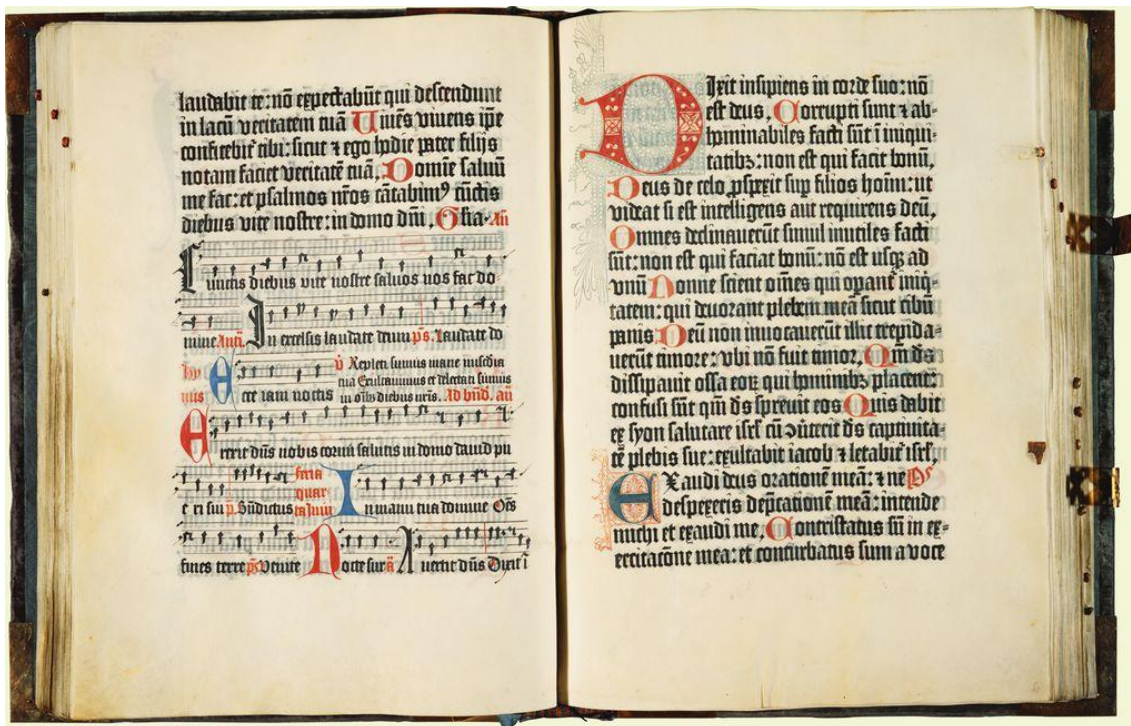 laudabit te: nō expectabūt qui descendunt
in lacū veritatem tuā Viuēs viuens ip̄e
confitebit̄ tibi: sicut ⁊ ego hodie pater filijs
notam faciet veritatē tuā, Domīe saluū
me fac: et psalmos nr̄os cātabimꝰ cūctis
diebus vite nostre: in domo dn̄i, Gl̄ia. An̄
Cunctis diebus vite nostre saluos nos fac do
mine Antī. In excelsis laudate deum p̄s. Laudate do
hy ℣ Repleti sumus mane misc̄dia
mnus Ecce iam noctis tua Exultauimus et delectati sumus
in oīb̄ diebus nr̄is. Ad bn̄d. an̄
Erexit dn̄s nobis cornu salutis in domo dauid pu
e ri sui p̄. Bn̄dictus feria quarta Inuit In manu tua domine Om̄s
fines terre p̄s Venite Nocte sur ā Auertit dn̄s Dixit ī
Dixit insipiens in corde suo: nō
est deus, Corrupti sunt ⁊ ab-
hominabiles facti sūt ī iniqui-
tatibꝫ: non est qui facit bonū,
Deus de celo ꝓspexit suꝑ filios hoīm: ut
videat si est intelligens aut requirens deū,
Omnes declinauerūt simul inutiles facti
sūt: non est qui faciat bonū: nō est usqꝫ ad
vnū Nonne scient om̄es qui oꝑant̄ iniq-
tatem: qui deuorant plebem meā sicut cibū
panis Deū non inuocauerūt illic trepida-
uerūt timore: vbi nō fuit timor, Qm̄ ds̄
dissipauit ossa eoꝝ qui hominibꝫ placent:
confusi sūt qm̄ ds̄ spreuit eos Quis dabit
ex syon salutare isrl̄ cū ↄūterit ds̄ captiuita-
tē plebis sue: exultabit iacob ⁊ letabit̄ isrl̄,
Exaudi deus orationē meā: ⁊ ne Ps̄
despexeris dep̄cationē meā: intende
michi et exaudi me, Contristatus sū in ex-
ercitacōne mea: et conturbatus sum a voce